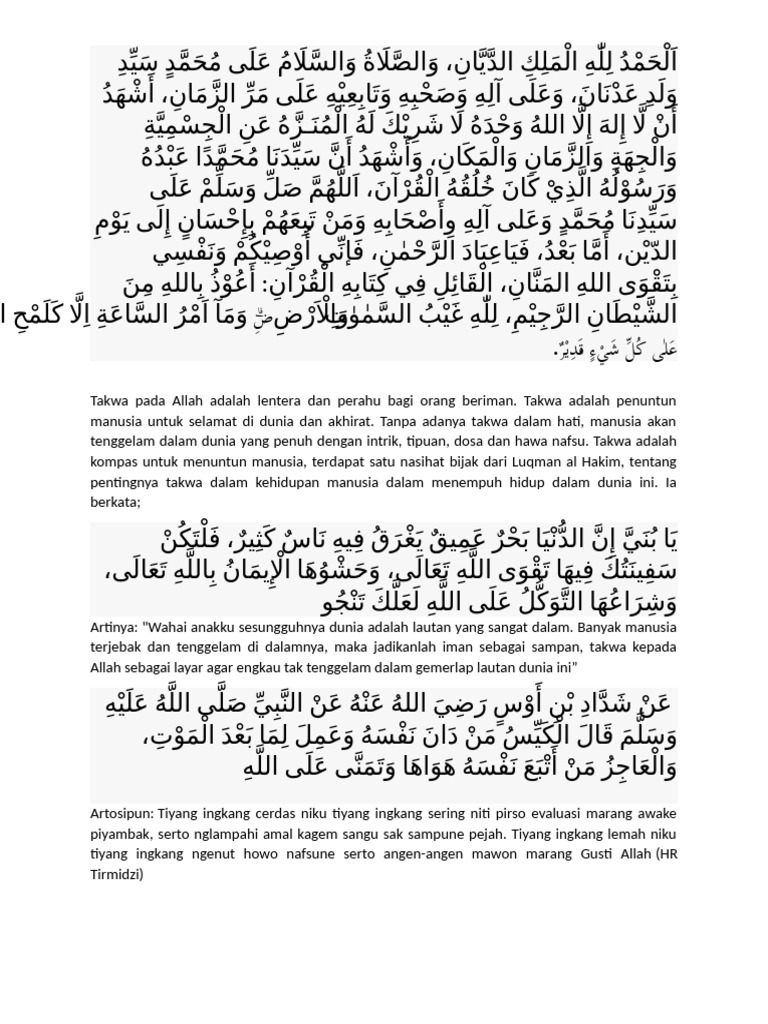 اَلْحَمْدُ لِلّٰهِ الْمَلِكِ الدَّيَّانِ، وَالصَّلَاةُ وَالسَّلَامُ عَلَى مُحَمَّدٍ سَيِّدِ
وَلَدِ عَدْنَانَ، وَعَلَى آلِهِ وَصَحْبِهِ وَتَابِعِيْهِ عَلَى مَرِّ الزَّمَانِ، أَشْهَدُ
أَنْ لَّا إِلهَ إِلَّا اللهُ وَحْدَهُ لَا شَرِيْكَ لَهُ الْمُنَـزَّهُ عَنِ الْجِسْمِيَّةِ
وَالْجِهَةِ وَالزَّمَانِ وَالْمَكَانِ، وَأَشْهَدُ أَنَّ سَيِّدَنَا مُحَمَّدًا عَبْدُهُ
وَرَسُوْلُهُ الَّذِيْ كَانَ خُلُقُهُ الْقُرْآنَ، اَللَّهُمَّ صَلِّ وَسَلِّمْ عَلَى
سَيِّدِنَا مُحَمَّدٍ وَعَلى آلِهِ وِأَصْحَابِهِ وَمَنْ تَبِعَهُمْ بِإِحْسَانٍ إِلَى يَوْمِ
الدِّيْنِ، أَمَّا بَعْدُ، فَيَاعِبَادَ الرَّحْمٰنِ، فَإنِّي أُوْصِيْكُمْ وَنَفْسِي
بِتَقْوَى اللهِ المَنَّانِ، الْقَائِلِ فِي كِتَابِهِ الْقُرْآنِ: أَعُوْذُ بِاللهِ مِنَ
الشَّيْطَانِ الرَّجِيْمِ، لِلّٰهِ غَيْبُ السَّمٰوٰتِ وَالْاَرْضِۗ وَمَآ اَمْرُ السَّاعَةِ اِلَّا كَلَمْحِ
عَلٰى كُلِّ شَيْءٍ قَدِيْرٌ.
Takwa pada Allah adalah lentera dan perahu bagi orang beriman. Takwa adalah penuntun
manusia untuk selamat di dunia dan akhirat. Tanpa adanya takwa dalam hati, manusia akan
tenggelam dalam dunia yang penuh dengan intrik, tipuan, dosa dan hawa nafsu. Takwa adalah
kompas untuk menuntun manusia, terdapat satu nasihat bijak dari Luqman al Hakim, tentang
pentingnya takwa dalam kehidupan manusia dalam menempuh hidup dalam dunia ini. Ia
berkata;
يَا بُنَيَّ إِنَّ الدُّنْيَا بَحْرٌ عَمِيقٌ يَغْرَقُ فِيهِ نَاسٌ كَثِيرٌ، فَلْتَكُنْ
سَفِينَتُكَ فِيهَا تَقْوَى اللَّهِ تَعَالَى، وَحَشْوُهَا الْإِيمَانُ بِاللَّهِ تَعَالَى،
وَشِرَاعُهَا التَّوَكُّلُ عَلَى اللَّهِ لَعَلَّكَ تَنْجُو
Artinya: "Wahai anakku sesungguhnya dunia adalah lautan yang sangat dalam. Banyak manusia
terjebak dan tenggelam di dalamnya, maka jadikanlah iman sebagai sampan, takwa kepada
Allah sebagai layar agar engkau tak tenggelam dalam gemerlap lautan dunia ini”
عَنْ شَدَّادِ بْنِ أَوْسٍ رَضِيَ اللهُ عَنْهُ عَنْ النَّبِيِّ صَلَّى اللَّهُ عَلَيْهِ
وَسَلَّمَ قَالَ الْكَيِّسُ مَنْ دَانَ نَفْسَهُ وَعَمِلَ لِمَا بَعْدَ الْمَوْتِ،
وَالْعَاجِزُ مَنْ أَتْبَعَ نَفْسَهُ هَوَاهَا وَتَمَنَّى عَلَى اللَّهِ
Artosipun: Tiyang ingkang cerdas niku tiyang ingkang sering niti pirso evaluasi marang awake
piyambak, serto nglampahi amal kagem sangu sak sampune pejah. Tiyang ingkang lemah niku
tiyang ingkang ngenut howo nafsune serto angen-angen mawon marang Gusti Allah (HR
Tirmidzi)